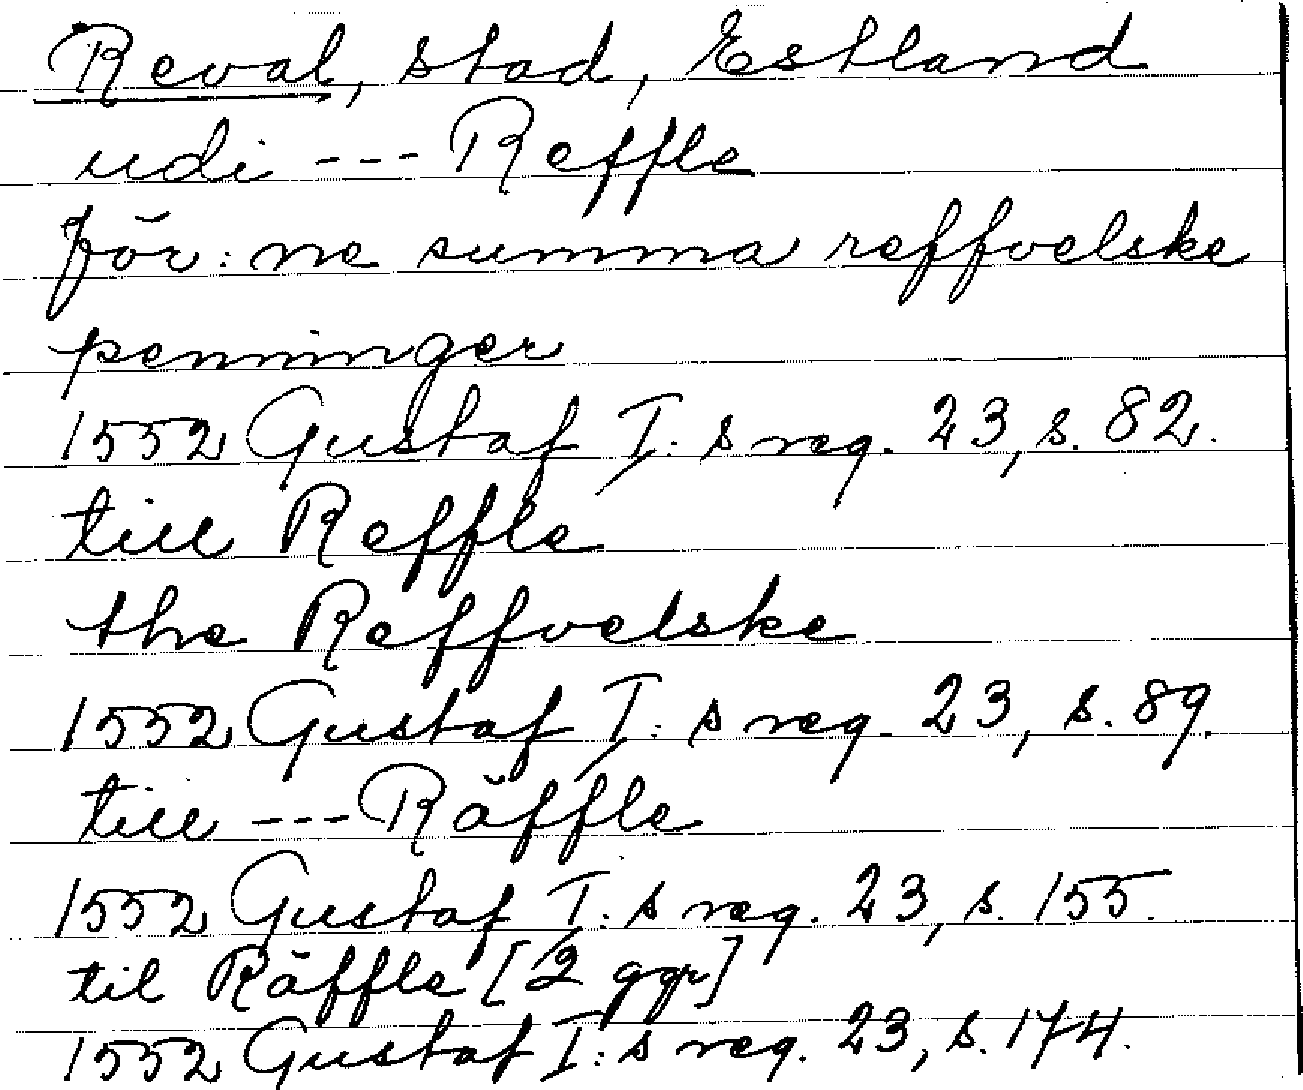 Reval, stad, Estland
udi --- Reffle
för: ne summa reffvelske
penninger
1552 Gustaf I: s reg. 23, s. 82.
till Reffle
the Reffvelske
1552 Gustaf I: s reg. 23, s. 89.
till --- Räffle
1552 Gustaf I: s reg. 23, s. 155.
til Räffle [2 ggr]
1552 Gustaf I: s reg. 23, s. 174.